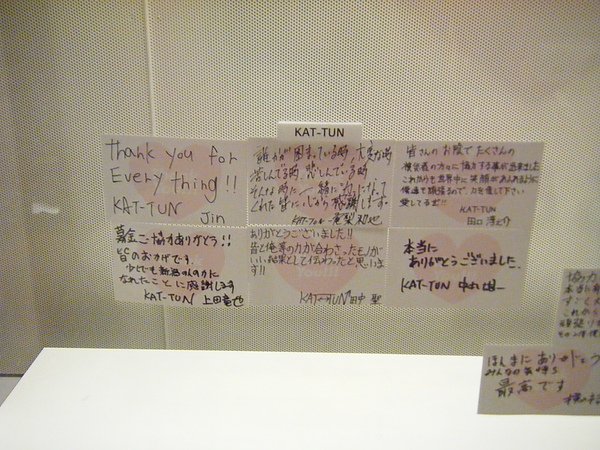 KAT-TUN
Thank you for
Everything!!
KAT-TUN Jin
誰かが困まっている時、大変な時
苦しんでる時、悲しんでいる時
そんな時に一緒に力になって
くれた皆に、心から感謝します。
KAT-TUN 亀梨和也
皆さんのお陰でたくさんの
被災者の方々に協力する事が出来ました
これからも世界中に笑顔があふれるように
俺達も頑張るので、力を貸して下さい
愛してるぜ!!
KAT-TUN
田口淳之介
募金ご協力ありがとう!!
皆のおかげです。
少しでも新潟の人の力に
なれたことに感謝します
KAT-TUN 上田竜也
ありがとうございました!!
皆と俺等の力が合わさったモノが
いい結果として伝わったと思いま
す!!
KAT-TUN 田中 聖
本当に
ありがとうございました。
KAT-TUN 中丸雄一
協力
本当に
すごく
これから
頑張り
ほんまにありがとう
みんなの気持ち
最高です